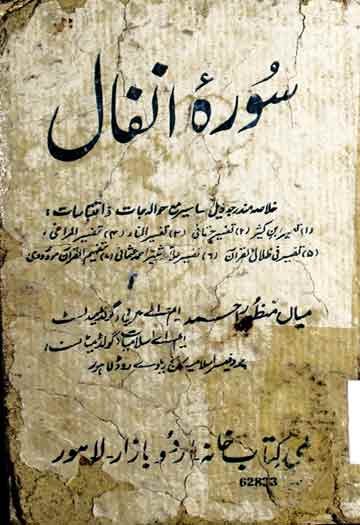 سُورۂ انفال
خلاصہ مندرجہ ذیل تفاسیر مع حوالہ جات و اقتباسات:
(۱) تفسیر ابن کثیر (۲) تفسیر حقانی (۳) تفسیر المنار (۴) تفسیر المراغی،
(۵) تفسیر فی ظلال القرآن (۶) تفسیر علامہ شبیر احمد عثمانی (۷) تفہیم القرآن مودودی
میاں منظور احمد ایم اے عربی، گولڈ میڈلسٹ
ایم اے اسلامیات گولڈ میڈلسٹ:
پروفیسر اسلامیہ کالج ریلوے روڈ لاہور
علمی کتاب خانہ۔ اردو بازار۔ لاہور
62833